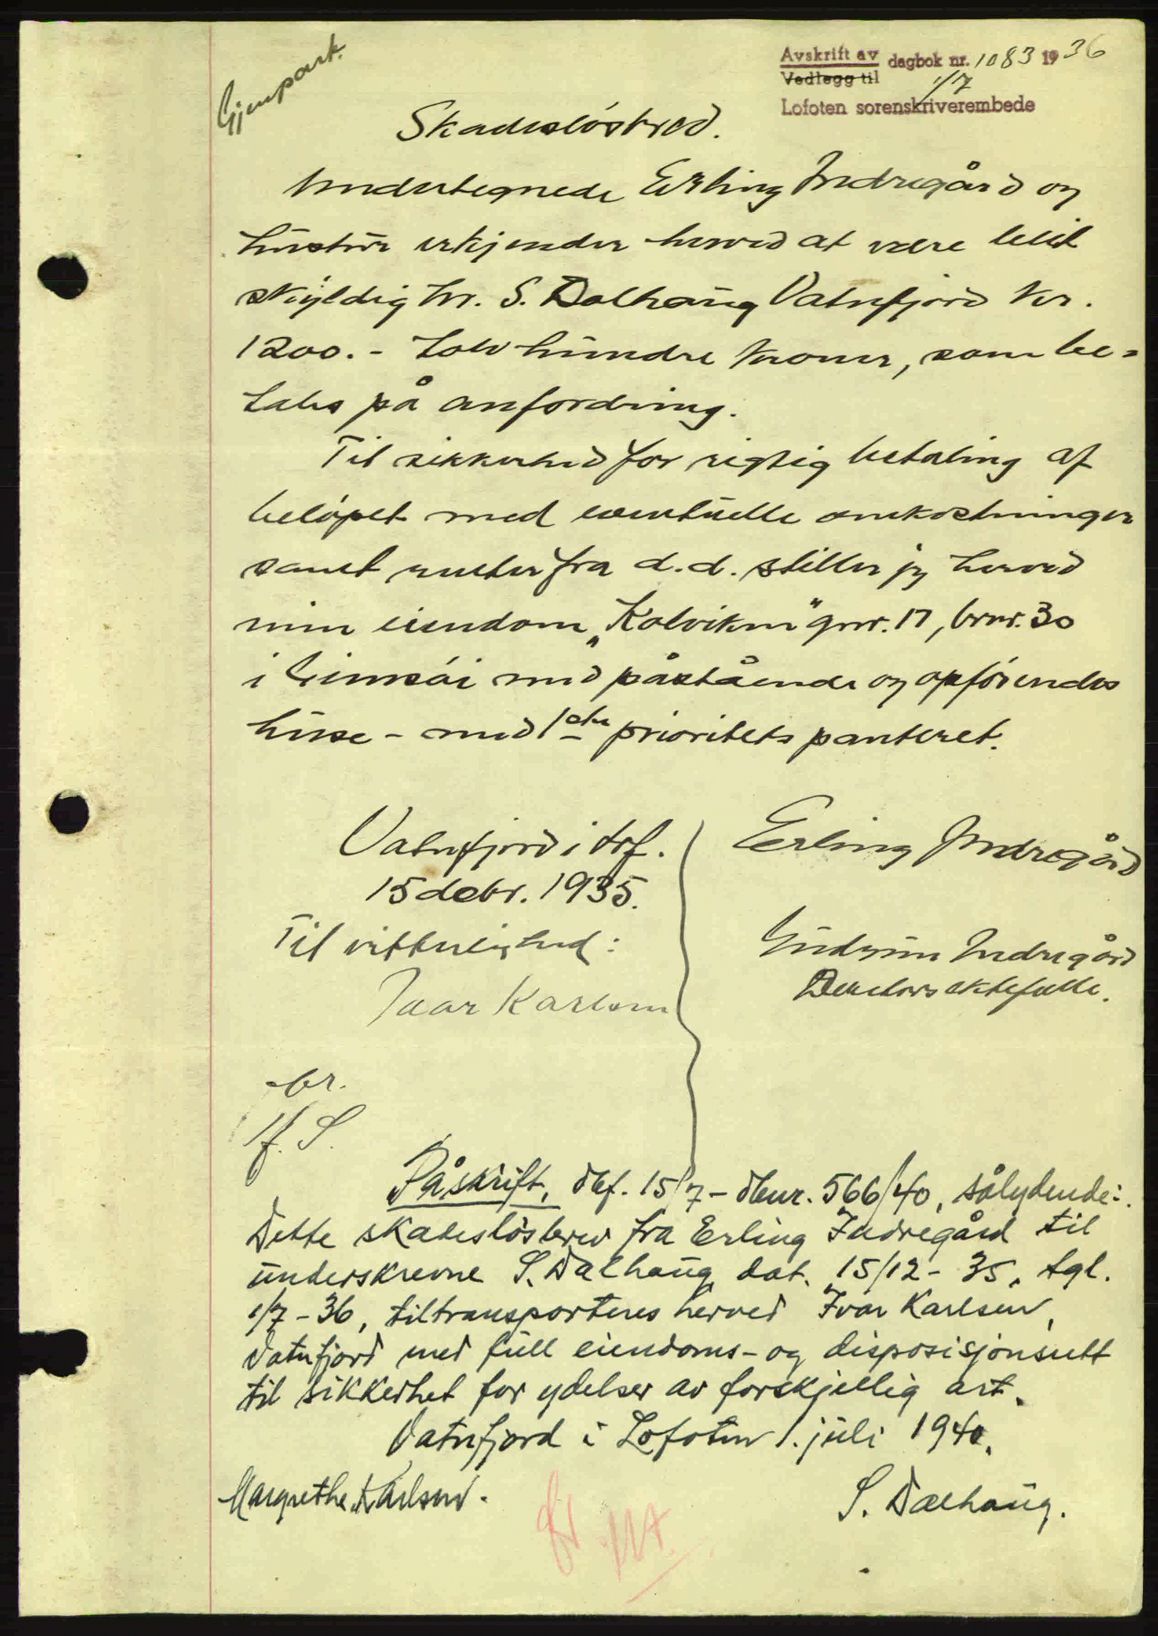 Gjenpart.
Avskrift av dagbok nr. 1083 1936
Vedlegg til 1/7
Lofoten sorenskriverembede
Skadesløsbrev.
Undertegnede Erling Indregård og
hustru erkjender herved at være blit
skyldig hr. S. Dalhaug Vatnfjord kr.
1200.- tolv hundre kroner, som be=
tales på anfordring.
Til sikkerhed for rigtig betaling af
beløpet med eventuelle omkostninger
samt renter fra d.d. stiller jeg herved
min eiendom „Kolvikm" gnr. 17, brnr. 30
i Gimsøi med påstående og opførendes
huse - med 1ste prioritets panteret.
Vatnfjord i Lof.
15 debr. 1935.
Til vitterlighed:
Ivar Karlsen
Erling Indregård
Gudrun Indregård
Debitors ektefælle.
br.
H. S.
Påskrift, dbf. 15/7 - dbnr. 566/40, sålydende:
Dette skadesløsbrev fra Erling Indregård til
underskrevne S. Dalhaug dat. 15/12 - 35, tgl.
1/7 - 36, tiltransporteres herved Ivar Karlsen,
Vatnfjord med full eiendoms- og disposisjonsrett
til sikkerhet for ydelser av forskjellig art.
Vatnfjord i Lofoten 1. juli 1940.
Margrethe Karlsen.
S. Dalhaug.